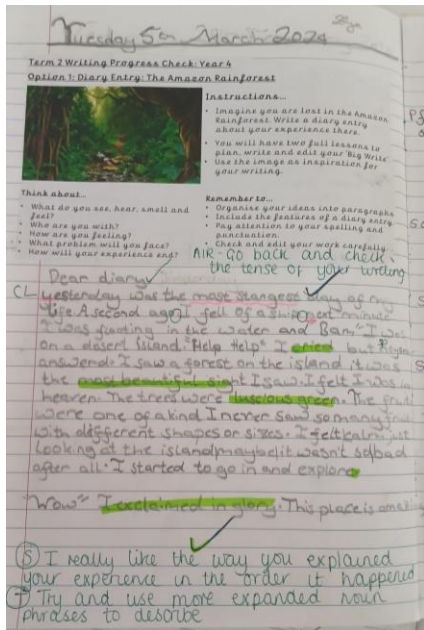 Tuesday 5th March 2024
Term 2 Writing Progress Check: Year 4
Option 1: Diary Entry: The Amazon Rainforest
Instructions...
• Imagine you are lost in the Amazon
Rainforest. Write a diary entry
about your experience there.
• You will have two full lessons to
plan, write and edit your 'Big Write'
• Use the image as inspiration for
your writing.
Think about...
• What do you see, hear, smell and
feel?
• Who are you with?
• How are you feeling?
• What problem will you face?
How will your experience end?
Remember to...
• Organise your ideas into paragraphs
• Include the features of a diary entry
• Pay attention to your spelling and
punctuation.
• Check and edit your work carefully
AIR - Go back and check
the tense of your writing
Dear diary
CL
yesterday was the most stangest day of my
life A second ago I fell of a ship next minute
I was floating in the water and Bam" I was
on a desert island. "Help Help" I cried but
answerd. I saw a forest on the island it was
the most beautiful sight I saw. I felt I was in
heaven. The trees were luscious green. The
were one of a kind I never saw so many
with different shapes or sizes. I felt calm just
looking at the island maybe it wasn't so bad
after all. I started to go in and explore
"Wow" I exclaimed in glory. This place is
S I really like the way you explained
your experience in the order it happened
T Try and use more expanded noun
phrases to describe